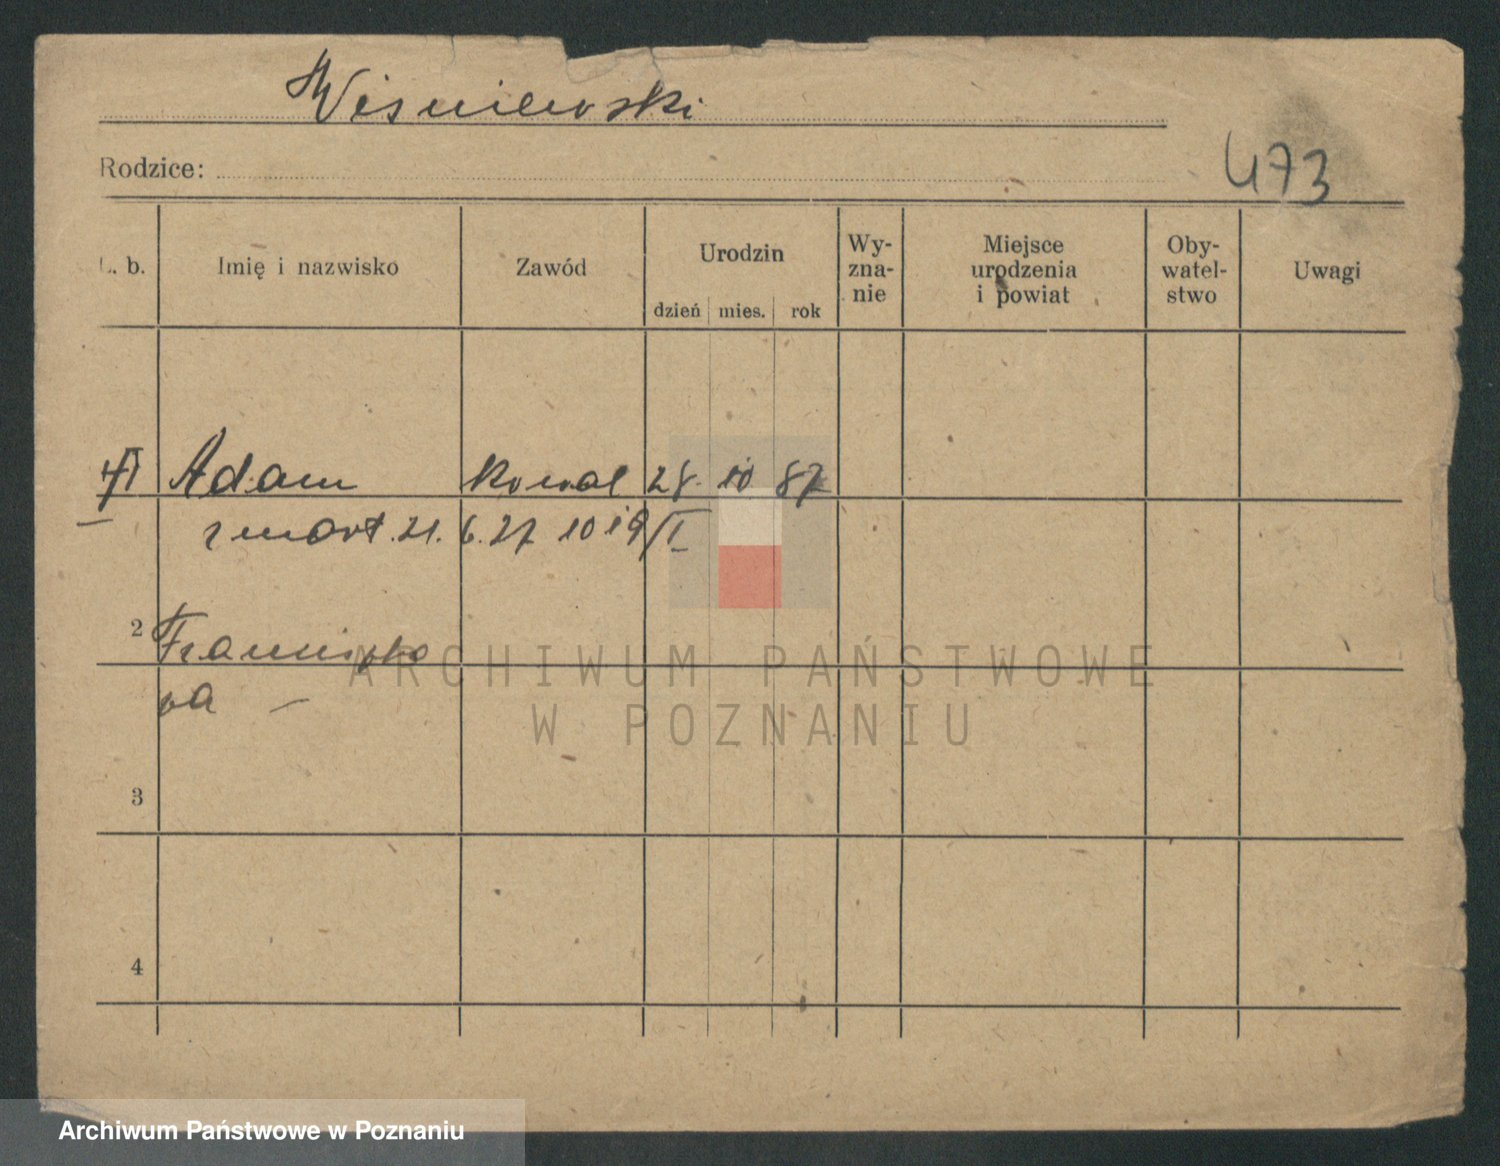 Wiśniewski
Rodzice:
473
L. b.
Imię i nazwisko
Zawód
Urodzin
dzień mies. rok
Wy-
zna-
nie
Miejsce
urodzenia
i powiat
Oby-
watel-
stwo
Uwagi
Adam kowal 28. 10 87
zmart. 21. 6. 27 1019/I
2 Franciszka
ARCHIWUM PAŃSTWOWE
W POZNANIU
3
4
Archiwum Państwowe w Poznaniu